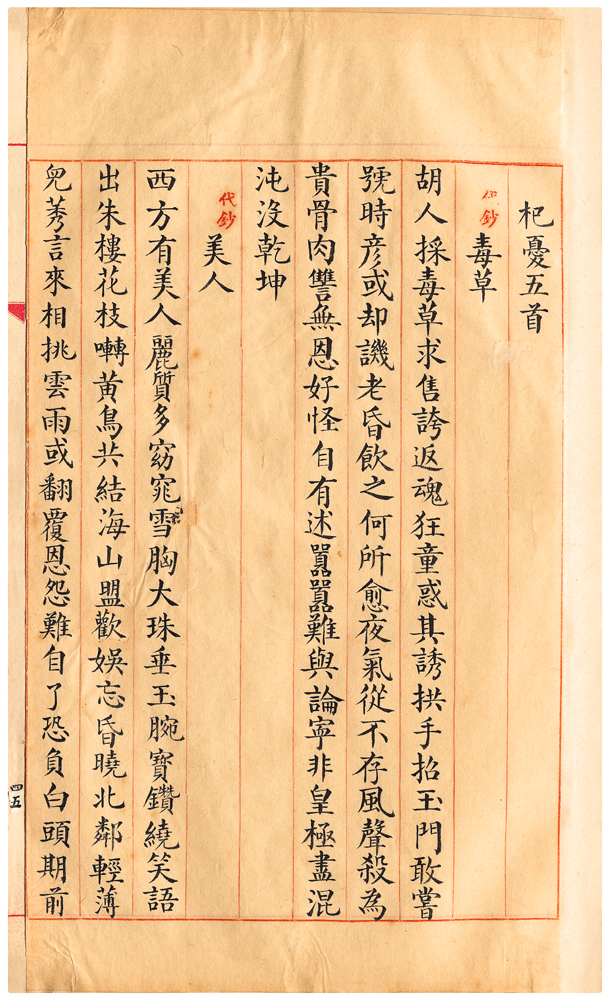 杞憂五首
代鈔
毒草
胡人採毒草求售誇返魂狂童惑其誘拱手招玉門敢嘗
號時彥或却譏老昏飲之何所愈夜氣從不存風聲殺為
貴骨肉讐無恩好怪自有述囂囂難與論寧非皇極盡混
沌沒乾坤
代鈔
美人
西方有美人麗質多窈窕雪胸大珠垂玉腕寶鑽繞笑語
出朱樓花枝囀黃鳥共結海山盟歡娛忘昏曉北鄰輕薄
兒莠言來相挑雲雨或翻覆恩怨難自了恐負白頭期前
四五